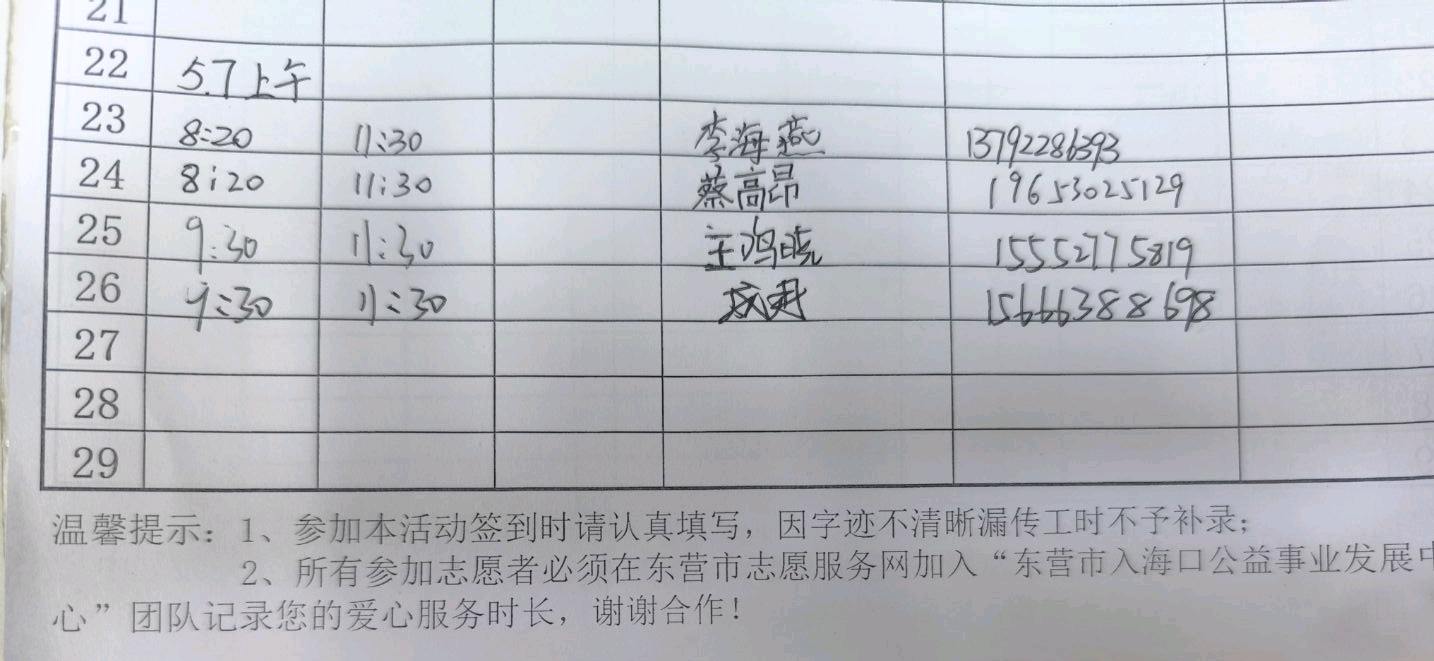 21
22 5.7上午
23 8:20 11:30 李海燕 13792286393
24 8:20 11:30 蔡高昂 19653025129
25 9:30 11:30 王鸣晓 15552775819
26 9:30 11:30 15666388698
27
28
29
温馨提示：1、参加本活动签到时请认真填写，因字迹不清晰漏传工时不予补录；
2、所有参加志愿者必须在东营市志愿服务网加入“东营市入海口公益事业发展中
心”团队记录您的爱心服务时长，谢谢合作！